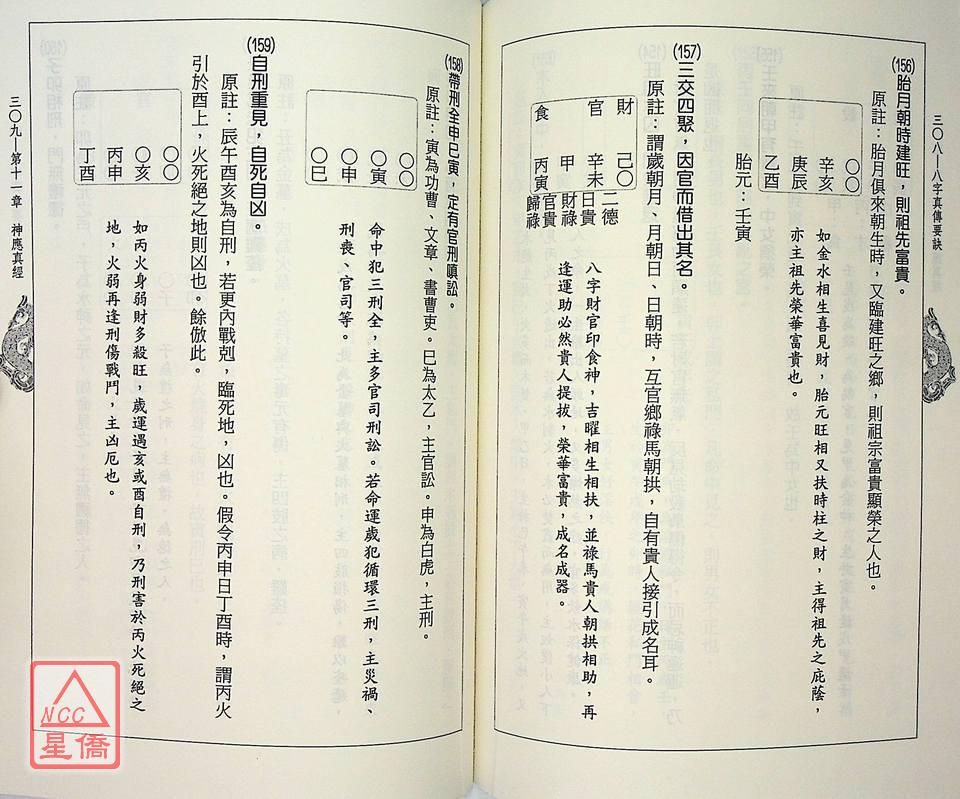 三〇八—八字真傳要訣
(156)胎月朝時建旺，則祖先富貴。
原註：胎月俱來朝生時，又臨建旺之鄉，則祖宗富貴顯榮之人也。
〇〇
辛亥
庚辰
乙酉
胎元：壬寅
如金水相生喜見財，胎元旺相又扶時柱之財，主得祖先之庇蔭，
亦主祖先榮華富貴也。
(157)三交四聚，因官而借出其名。
原註：謂歲朝月、月朝日、日朝時，互官鄉祿馬朝拱，自有貴人接引成名耳。
財 己〇 二德
官 辛未 日貴
甲 財祿
食 丙寅 官貴
歸祿
八字財官印食神，吉曜相生相扶，並祿馬貴人朝拱相助，再
逢運助必然貴人提拔，榮華富貴，成名成器。
(158)帶刑全申巳寅，定有官刑嗔訟。
原註：寅為功曹、文章、書曹吏。巳為太乙，主官訟。申為白虎，主刑。
〇〇
〇寅
〇申
〇巳
命中犯三刑全，主多官司刑訟。若命運歲犯循環三刑，主災禍、
刑喪、官司等。
(159)自刑重見，自死自凶。
原註：辰午酉亥為自刑，若更內戰剋，臨死地，凶也。假令丙申日丁酉時，謂丙火
引於酉上，火死絕之地則凶也。餘倣此。
〇〇
〇亥
丙申
丁酉
如丙火身弱財多殺旺，歲運遇亥或酉自刑，乃刑害於丙火死絕之
地，火弱再逢刑傷戰鬥，主凶厄也。
三〇九—第十一章 神應真經
NCC
星僑